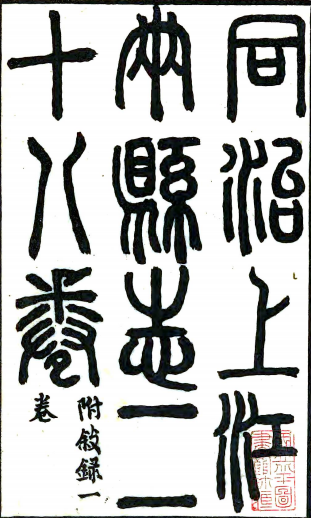 同治上江
兩縣志二
十八卷
附敘錄一
卷